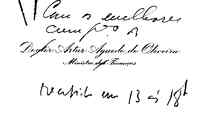 Com os melhores
cump.os de
Artur Aguedo de Oliveira
Ministro das Finanças
em 13 às 18h